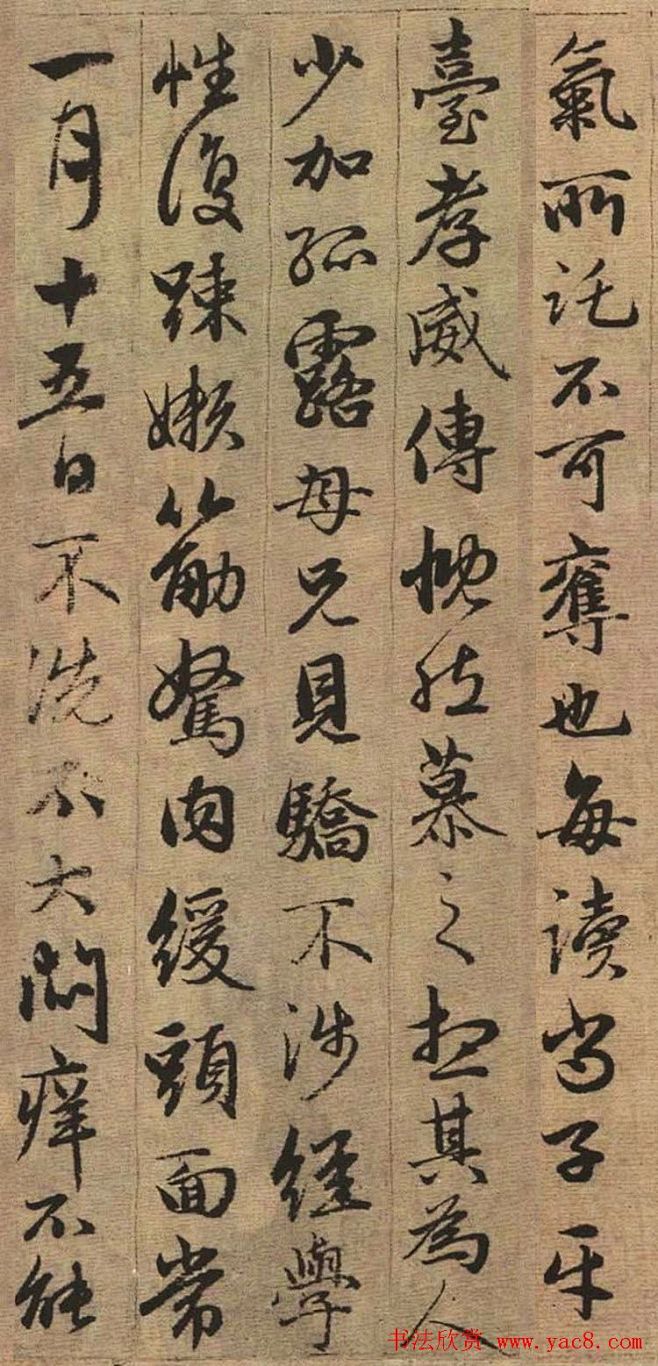 氣所託不可奪也每讀尚子平
臺孝威傳慨然慕之想其為人
少加孤露母兄見驕不涉經學
性復踈嬾筋駑肉緩頭面常
一月十五日不洗不大悶癢不能
书法欣赏 www.yac8.com